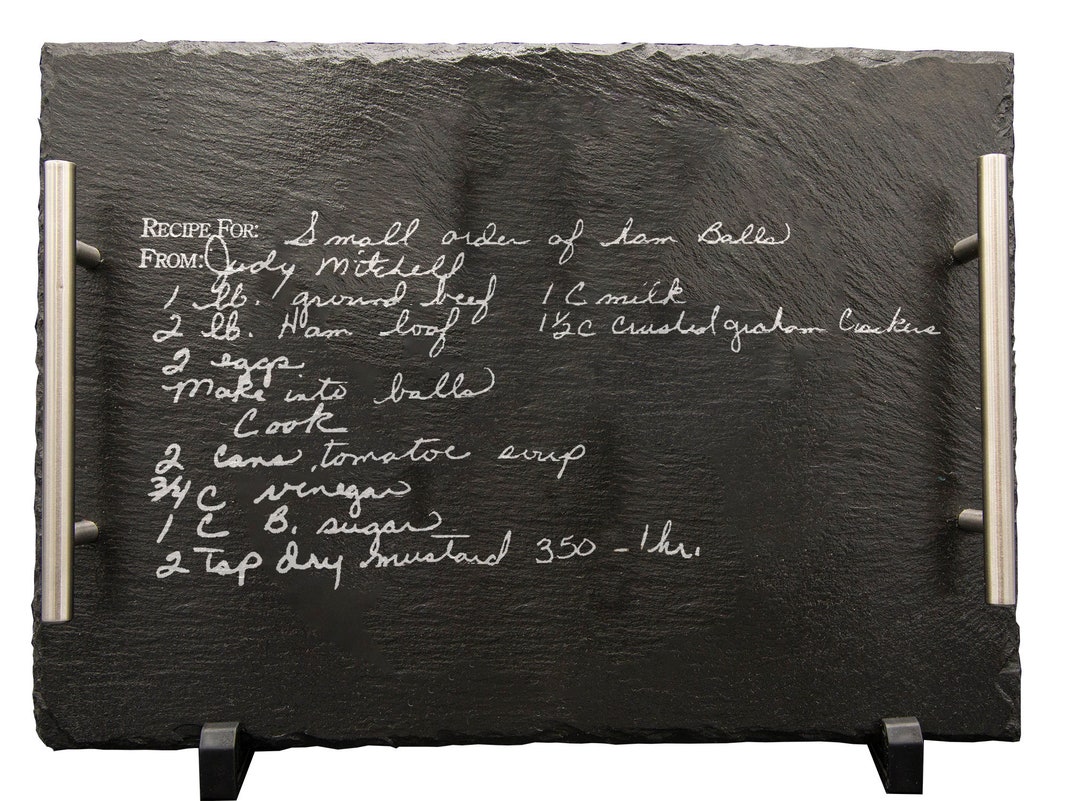 RECIPE FOR: Small order of ham Balls
FROM: Judy Mitchell
1 lb. ground beef 1 C milk
2 lb. Ham loaf 1 1/2 C Crushed graham Crackers
2 eggs
Make into balls
Cook
2 cans tomatoe soup
3/4 C vinegar
1 C B. sugar
2 Tsp dry mustard 350 - 1 hr.